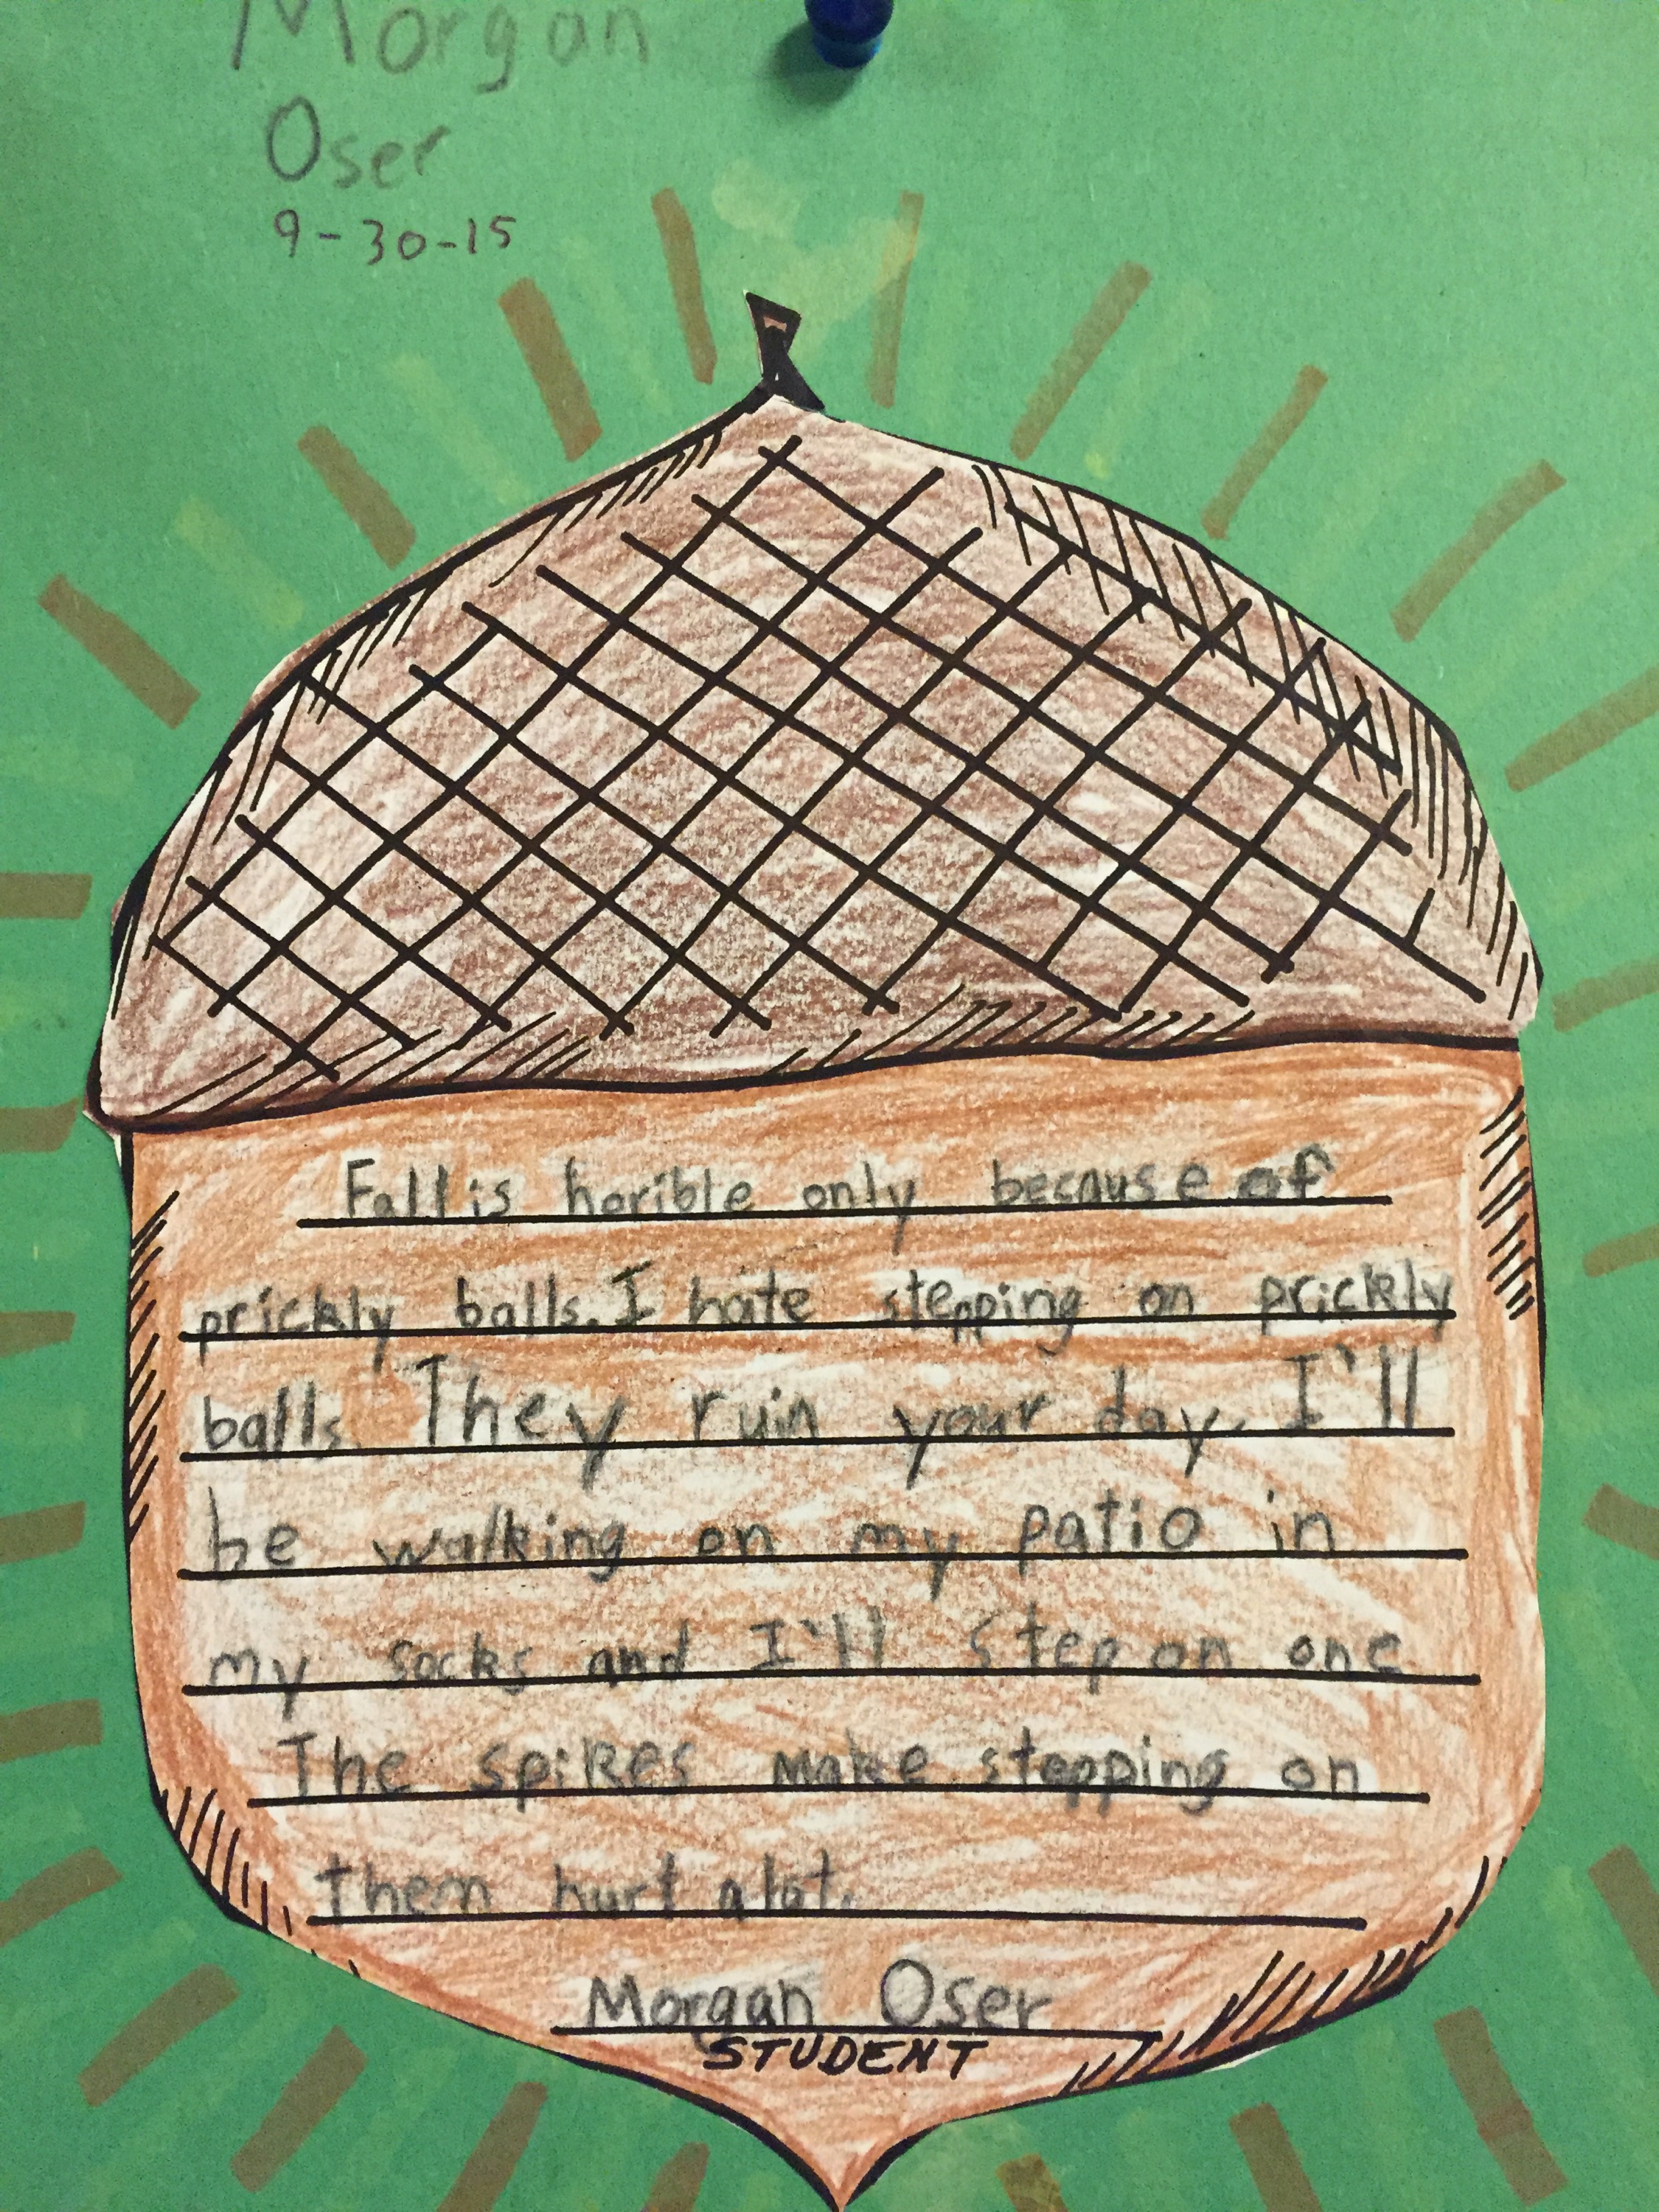 Morgan
Oser
9-30-15
Fall is horible only because of
prickly balls. I hate stepping on prickly
balls. They ruin your day. I'll
be walking on my patio in
my socks and I'll step on one
The spikes make stepping on
them hurt alot.
Morgan Oser
STUDENT